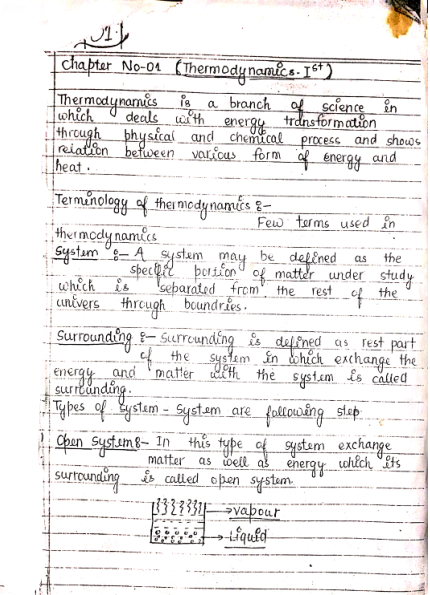 Chapter No-01 (Thermodynamics-Ist)
Thermodynamics is a branch of science in
which deals with energy transformation
through physical and chemical process and shows
relation between various form of energy and
heat.
Terminology of thermodynamics :-
Few terms used in
thermodynamics
System :- A system may be defined as the
specific portion of matter under study
which is separated from the rest of the
univers through boundries.
Surrounding :- Surrounding is defined as rest part
of the system in which exchange the
energy and matter with the system is called
surrounding.
Types of System - System are following step
Open System :- In this type of system exchange
matter as well as energy which its
surrounding is called open system
vapour
Liquid